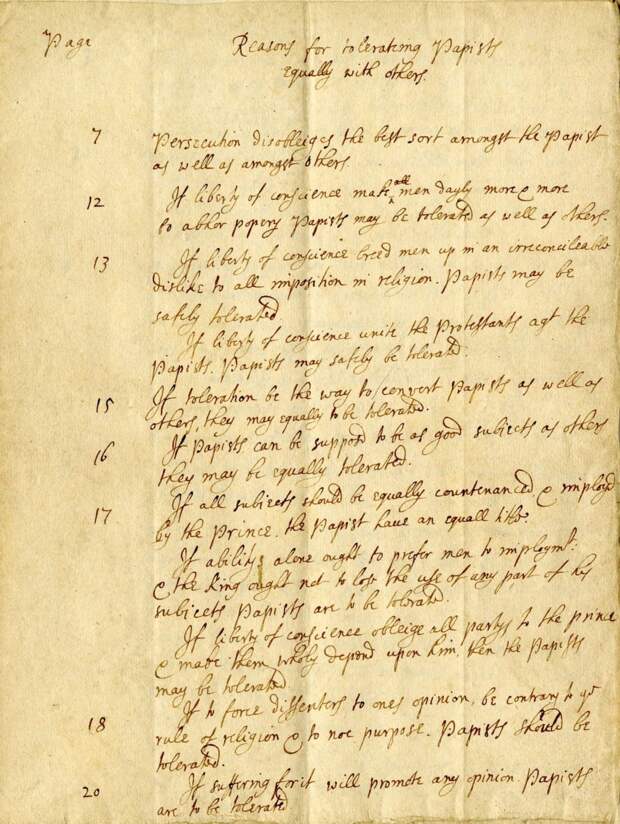 Page Reasons for tolerateing Papists
equally with others.
7 Persecution disobleiges the best sort amongst the Papist
as well as amongst others
12 If liberty of conscience make all men dayly more & more
to abhor popery Papists may be tolerated as well as others.
13 If liberty of conscience breed men up in an irreconcileable
dislike to all imposition in religion. Papists may be
safely tolerated.
If liberty of conscience unite the Protestants agt the
Papists. Papists may safely be tolerated.
15 If toleration be the way to convert Papists as well as
others, they may equally to be tolerated.
16 If Papists can be supposd to be as good subjects as others
they may be equally tolerated.
17 If all subjects should be equally countenanced & imployd
by the Prince. the Papist have an equall title.
If abilitys alone ought to prefer men to imploymt:
& the King ought not to loss the use of any part of his
subjects Papists are to be tolerated.
If liberty of conscience obleige all partys to the prince
& make them wholy depend upon him. then the Papists
may be tolerated
18 If to force dissenters to ones opinion, be contrary to ye
rule of religion & to noe purpose. Papists should be
tolerated.
20 If suffering for it will promote any opinion Papists
are to be tolerated